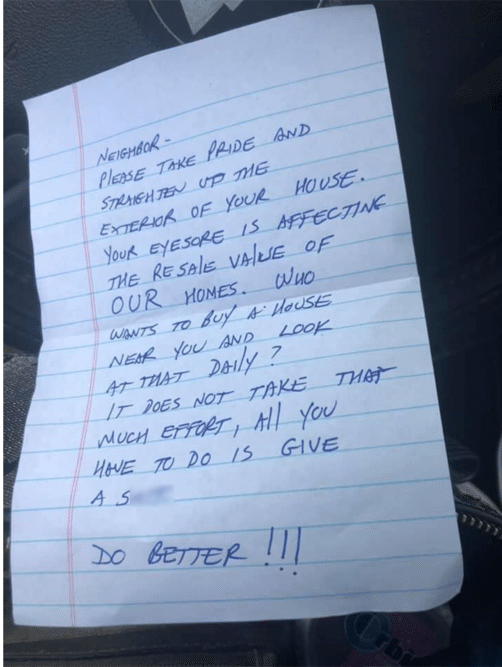 NEIGHBOR -
PLEASE TAKE PRIDE AND
STRAIGHTEN UP THE
EXTERIOR OF YOUR HOUSE.
YOUR EYESORE IS AFFECTING
THE RESALE VALUE OF
OUR HOMES. WHO
WANTS TO BUY A HOUSE
NEAR YOU AND LOOK
AT THAT DAILY?
IT DOES NOT TAKE THAT
MUCH EFFORT, All YOU
HAVE TO DO IS GIVE
A S
DO BETTER !!!